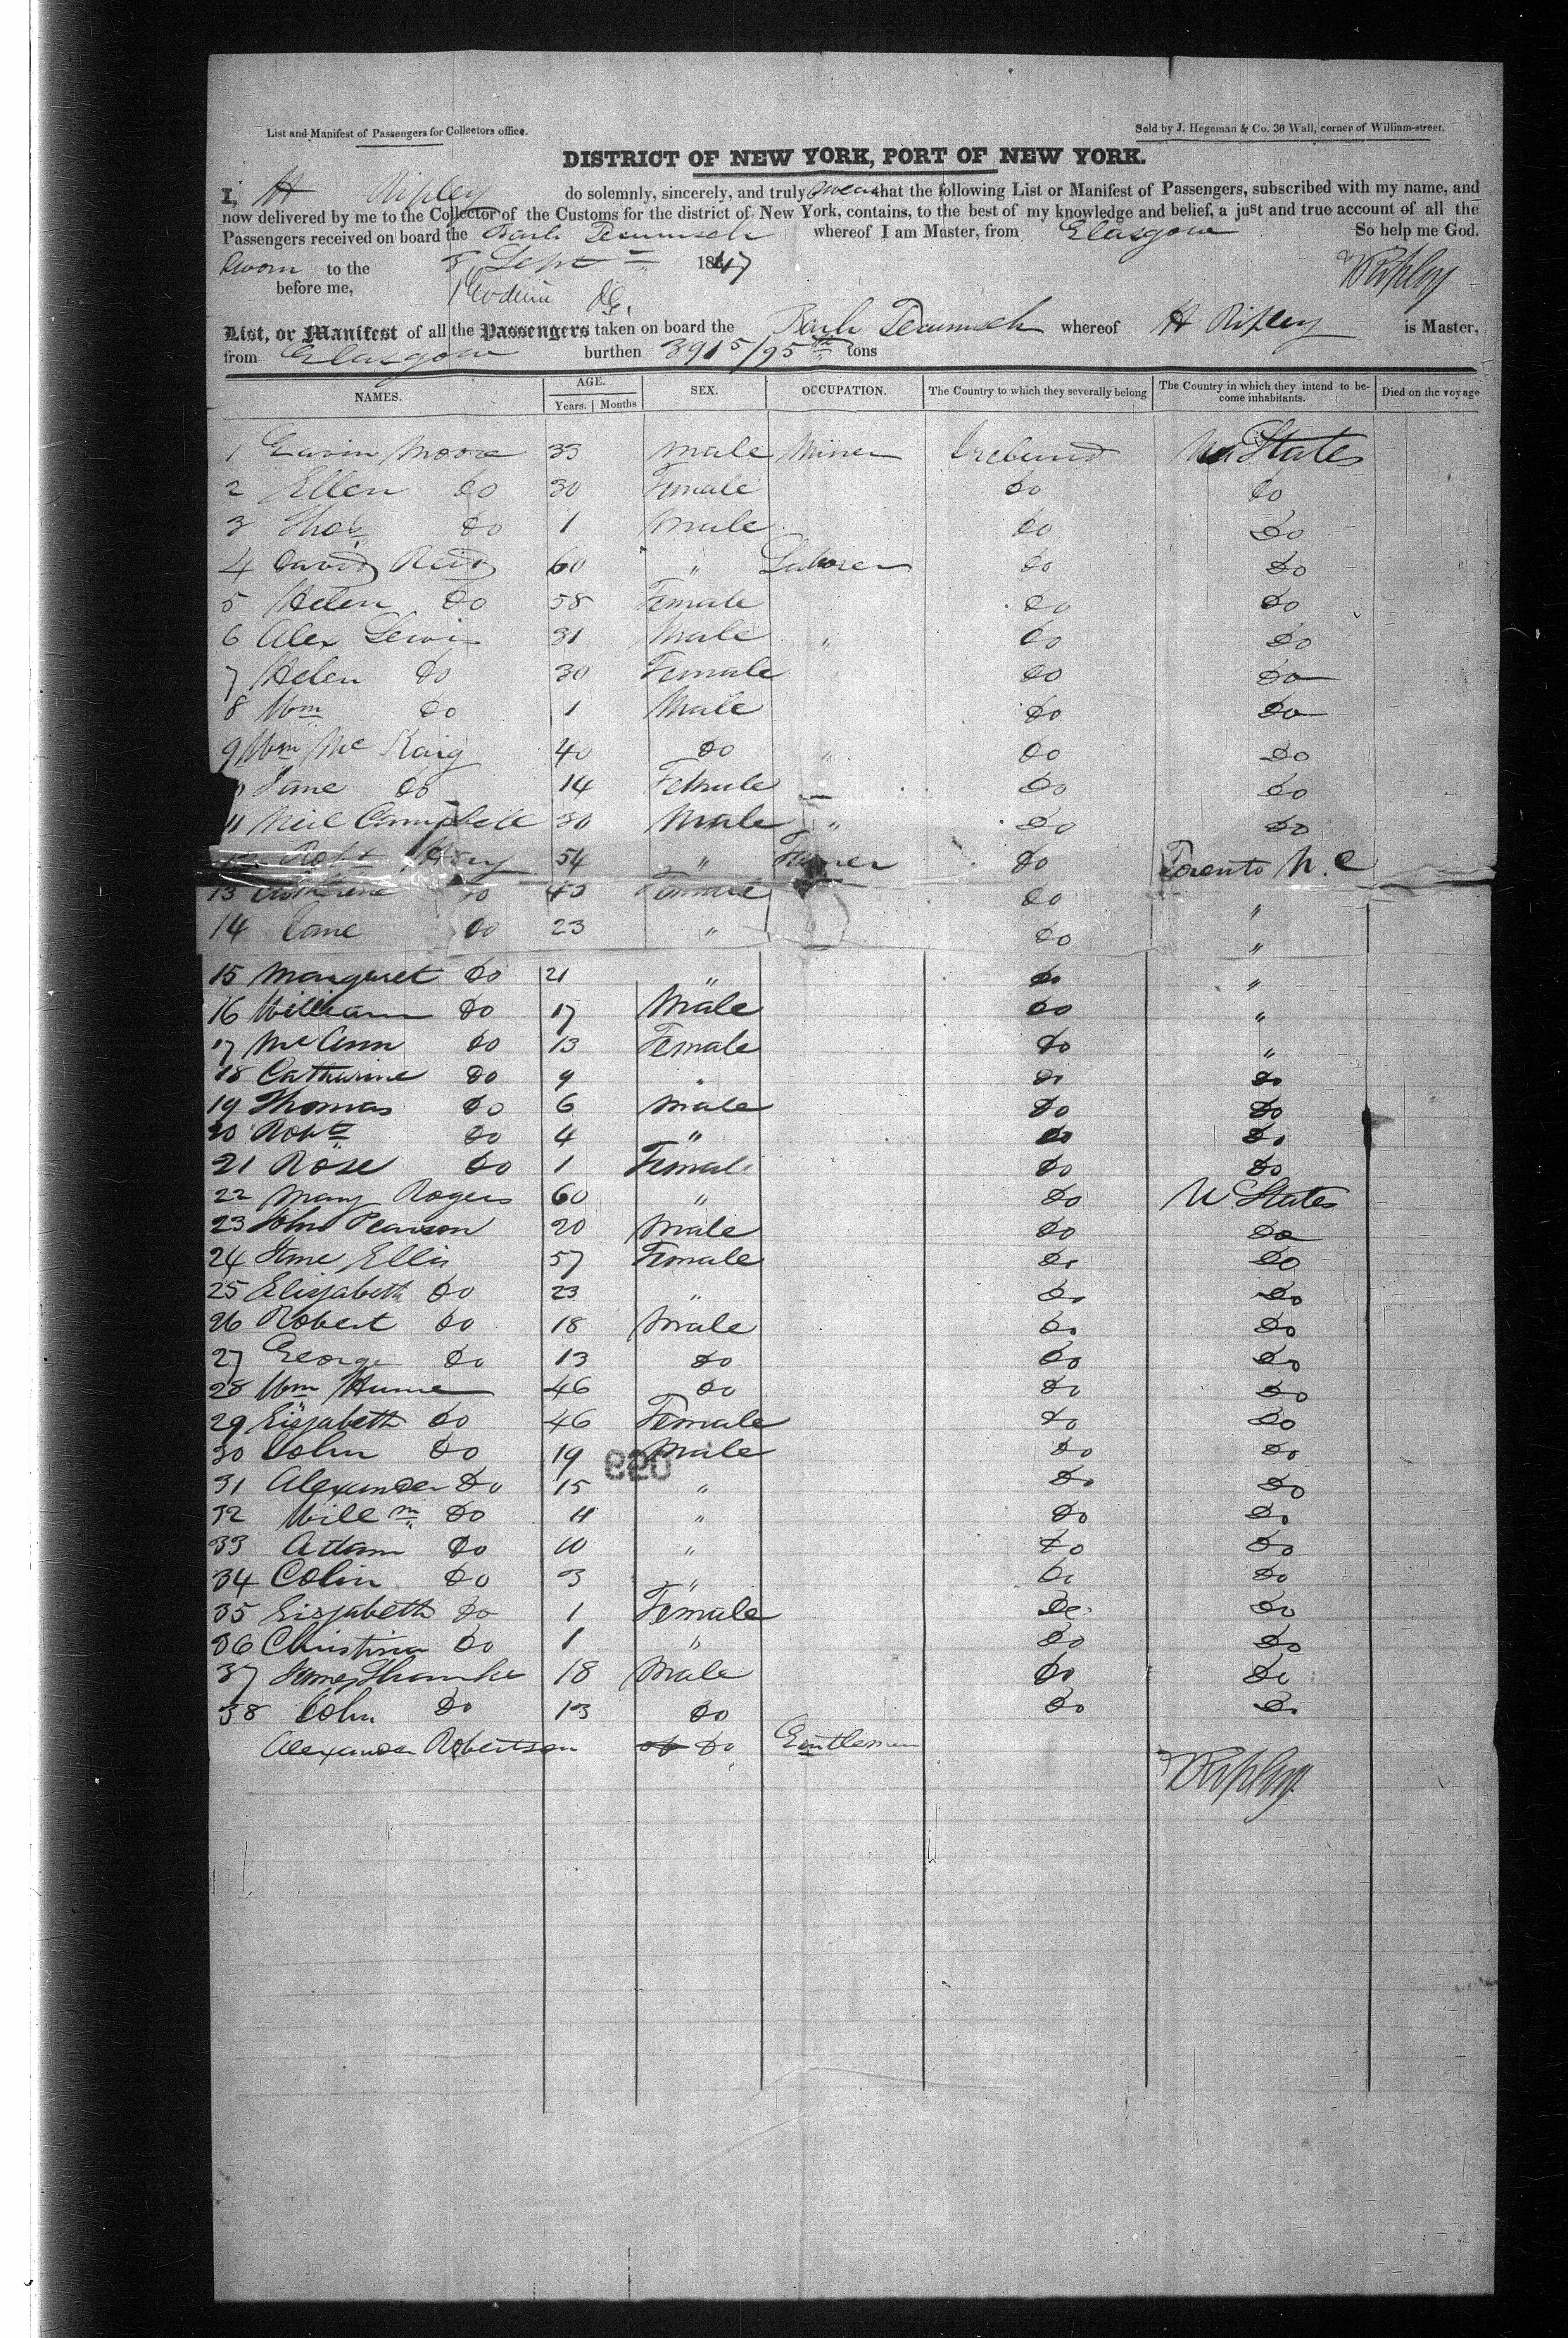 List and Manifest of Passengers for Collectors office.
Sold by J. Hegeman & Co. 30 Wall, corner of William-street.
DISTRICT OF NEW YORK, PORT OF NEW YORK.
I, H Ripley do solemnly, sincerely, and truly swear that the following List or Manifest of Passengers, subscribed with my name, and
now delivered by me to the Collector of the Customs for the district of New York, contains, to the best of my knowledge and belief, a just and true account of all the
Passengers received on board the Bark Tecumseh whereof I am Master, from Glasgow So help me God.
Sworn to the 8 Sept 1847 H Ripley
before me,
List, or Manifest of all the Passengers taken on board the Bark Tecumseh whereof H Ripley is Master,
from Glasgow burthen 391 5/95th tons
NAMES. AGE. SEX. OCCUPATION. The Country to which they severally belong The Country in which they intend to be-
Years. Months come inhabitants. Died on the voyage
1 Gavin Moore 33 Male Miner Ireland U States
2 Ellen Do 30 Female Do Do
3 Thos Do 1 Male Do Do
4 David Reid 60 " Laborer Do Do
5 Helen Do 58 Female Do Do
6 Alex Lewis 31 Male " Do Do
7 Helen Do 30 Female Do Do
8 Wm Do 1 Male Do Do
9 Wm Mc Kaig 40 Do " Do Do
Jane Do 14 Female Do Do
11 Neil Campbell 30 Male " Do Do
12 Robt 54 " Farmer Do Toronto U.C
13 Catherine Do 43 Female Do "
14 Jane Do 23 " Do "
15 Margeret Do 21 " Do "
16 William Do 17 Male Do "
17 McAnn Do 13 Female Do "
18 Catharine Do 9 " Do Do
19 Thomas Do 6 Male Do Do
20 Robt Do 4 " Do Do
21 Rose Do 1 Female Do Do
22 Mary Rogers 60 " Do U States
23 John Pearson 20 Male Do Do
24 Jane Ellis 57 Female Do Do
25 Elisjabeth Do 23 " Do Do
26 Robert Do 18 Male Do Do
27 George Do 13 Do Do Do
28 Wm Hume 46 Do Do Do
29 Eisjabeth Do 46 Female Do Do
30 John Do 19 Male Do Do
31 Alexander Do 15 " Do Do
32 Willm Do 11 " Do Do
33 Adam Do 10 " Do Do
34 Colin Do 3 " Do Do
35 Eisjabeth Do 1 Female Do Do
36 Christina Do 1 " Do Do
37 James 18 Male Do Do
38 John Do 13 Do Do Do
Alexander Robertson Do Gentleman
H Ripley